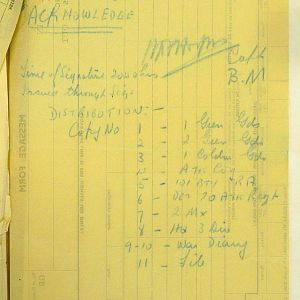 ACKNOWLEDGE
Capt
B.M
Time of Signature 2000 hrs
Issued through Sigs
DISTRIBUTION:-
Copy No 1 - 1 Gren Gds
2 - 2 Gren Gds
3 - 1 Coldm Gds
4 - A Tk Coy
5 - 101 Bty RA
6 - Det 20 A Tk Regt
7 - 2 Mx
8 - HQ 3 Div
9-10 - War Diary
11 - File
MESSAGE FORM